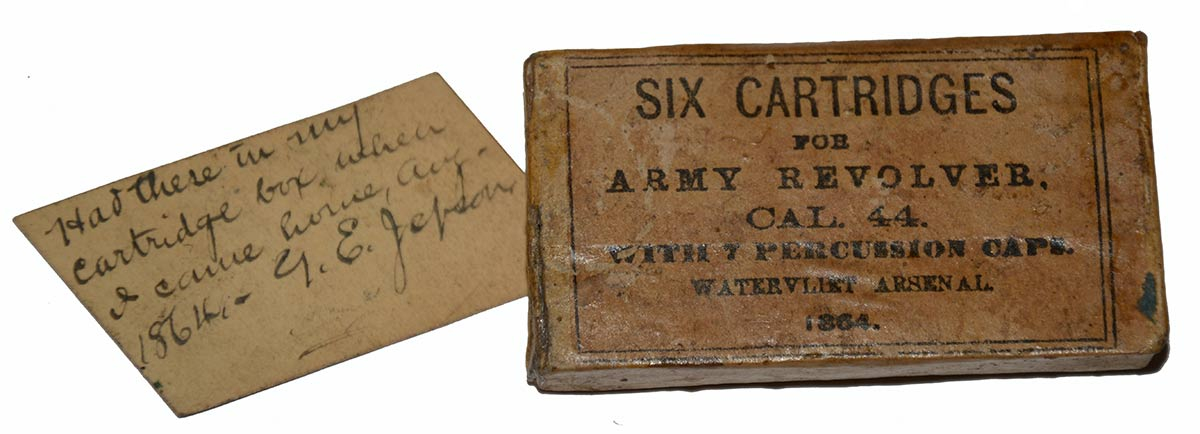 Had these in my
cartridge box, when
I came home, Aug.
1864.- G. E. Jepson
SIX CARTRIDGES
FOR
ARMY REVOLVER,
CAL. 44.
WITH 7 PERCUSSION CAPS.
WATERVLIET ARSENAL.
1864.